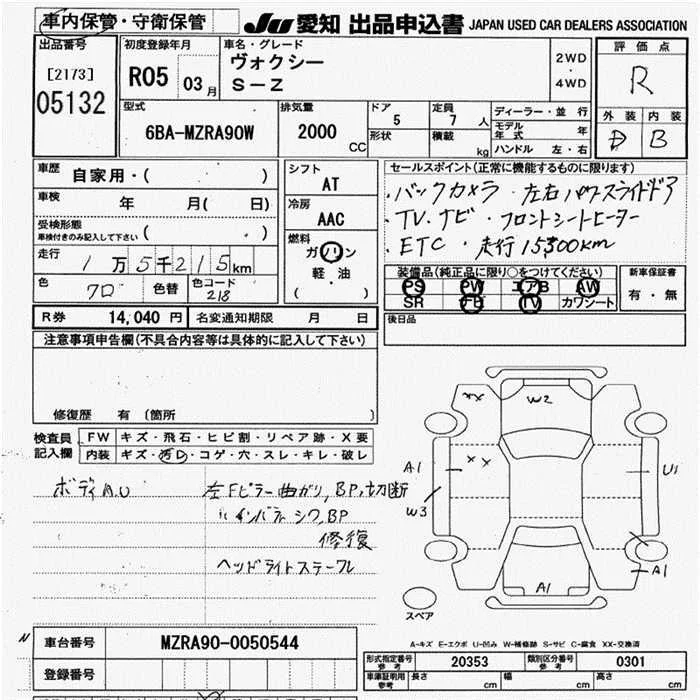 車内保管・守衛保管 JU 愛知 出品申込書 JAPAN USED CAR DEALERS ASSOCIATION
出品番号
[2173]
05132
初度登録年月
R05 03月
車名・グレード
ヴォクシー
S-Z
2WD
・
4WD
評価点
R
外装 内装
D B
型式
6BA-MZRA90W
排気量
2000 CC
ドア 5
形状
定員 7 人
積載 kg
ディーラー・並行
モデル年式 年
ハンドル 左・右
車歴 自家用・( )
車検 年 月( 日)
受検形態
車検付きのみ記入して下さい ( )
走行 1万5千215km
色 クロ 色替 色コード 218
シフト
AT
冷房
AAC
燃料
ガソリン
軽・油
( )
セールスポイント(正常に機能するものに限ります)
・バックカメラ・左右パワースライドドア
・TV.ナビ・フロントシートヒーター
・ETC・走行15300km
装備品(純正品に限り○をつけてください)
PS PW エアB AW
SR ナビ TV カワシート
新車保証書
有・無
R券 14,040円 名変通知期限 月 日
後日品
注意事項申告欄(不具合内容等は具体的に記入して下さい)
修復歴 有 〔箇所 〕
検査員記入欄
FW キズ・飛石・ヒビ割・リペア跡・X要
内装 キズ・汚れ・コゲ・穴・スレ・キレ・破レ
ボディA.U 左Fピラー曲ガリ,BP,切断
〃インパネ シワ,BP
修復
ヘッドライトステーワレ
XX W2
A1 XX U1
W3
A1
A1
スペア
A-キズ E-エクボ U-凹み W-補修跡 S-サビ C-腐食 XX-交換済
N 車台番号 MZRA90-0050544
登録番号
形式指定番号 参考 20353 類別区分番号 参考 0301
車庫証明用 参考 長さ cm 幅 cm 高さ cm